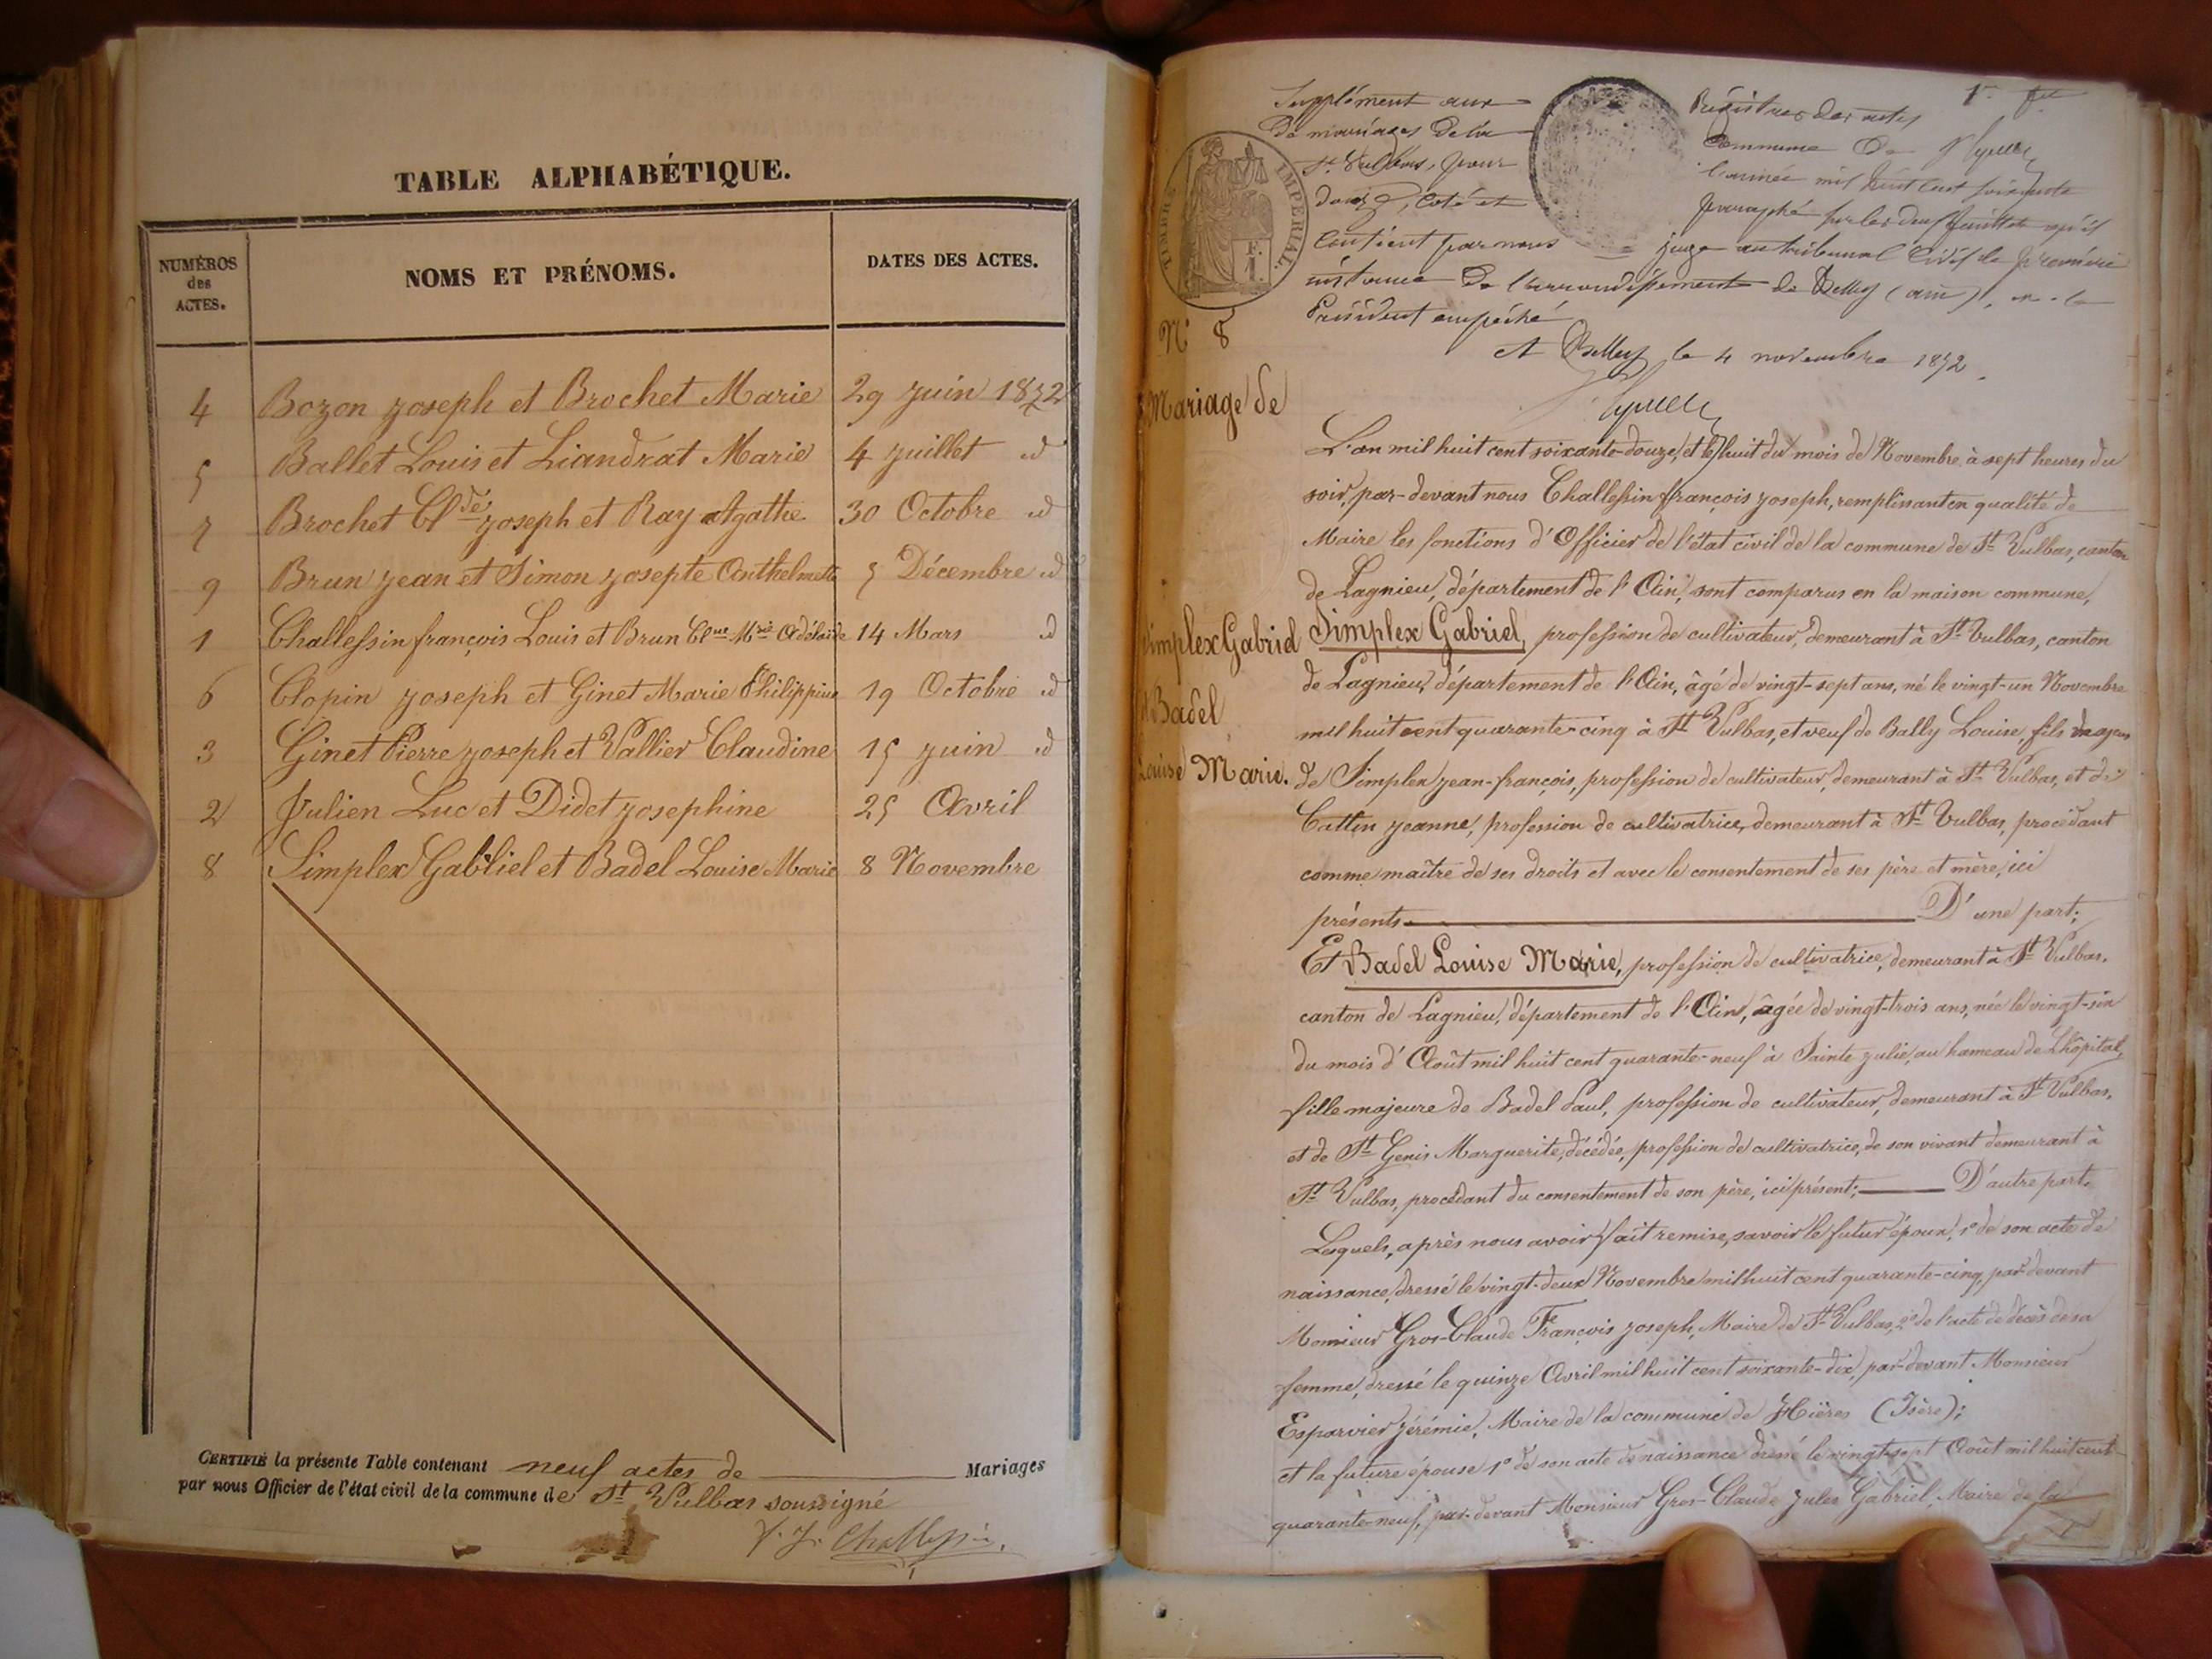 TABLE ALPHABÉTIQUE.
NUMÉROS des ACTES. NOMS ET PRÉNOMS. DATES DES ACTES.
4 Bozon Joseph et Brochet Marie 29 Juin 1872
5 Ballet Louis et Liandrat Marie 4 Juillet id
7 Brochet Cl^de Joseph et Ray Agathe 30 Octobre id
9 Brun Jean et Simon Josepte Anthelmette 5 Décembre id
1 Challessin françois Louis et Brun Cl^ne M^rie Adélaïde 14 Mars id
6 Clopin Joseph et Ginet Marie Philippine 19 Octobre id
3 Ginet Pierre Joseph et Vallier Claudine 15 Juin id
2 Julien Luc et Didet Josephine 25 Avril
8 Simplex Gabriel et Badel Louise Marie 8 Novembre
CERTIFIÉ la présente Table contenant neuf actes de Mariages
par nous Officier de l'état civil de la commune de St Vulbas soussigné
f. J. Challessin
1er ft
Supplément aux Régistres des actes
de mariages de la commune de
St Vulbas, pour l'année mil huit cent soixante
douze, coté et paraphé sur les deux feuillets qu'il
contient par nous juge au tribunal Civil de première
instance de l'arrondissement de Belley (ain), en le
Président empêché
A Belley le 4 novembre 1872.
TIMBRE IMPÉRIAL
F.
1
N° 8
Mariage de
Simplex Gabriel
et Badel
Louise Marie.
L'an mil huit cent soixante-douze, et le huit du mois de Novembre, à sept heures du
soir, par-devant nous Challessin françois Joseph, remplissant en qualité de
Maire les fonctions d'Officier de l'état civil de la commune de St Vulbas, canton
de Lagnieu, département de l'Ain, sont comparus en la maison commune,
Simplex Gabriel, profession de cultivateur, demeurant à St Vulbas, canton
de Lagnieu, département de l'Ain, âgé de vingt-sept ans, né le vingt-un Novembre
mil huit cent quarante-cinq à St Vulbas, et veuf de Bally Louise, fils majeur
de Simplex Jean-françois, profession de cultivateur, demeurant à St Vulbas, et de
Cattin Jeanne, profession de cultivatrice, demeurant à St Vulbas, procédant
comme maître de ses droits et avec le consentement de ses père et mère, ici
présents D'une part;
Et Badel Louise Marie, profession de cultivatrice, demeurant à St Vulbas,
canton de Lagnieu, département de l'Ain, âgée de vingt-trois ans, née le vingt-six
du mois d'Août mil huit cent quarante-neuf à Sainte Julie, au hameau de Lhôpital,
fille majeure de Badel Paul, profession de cultivateur, demeurant à St Vulbas,
et de St Genis Marguerite, décédée, profession de cultivatrice, de son vivant demeurant à
St Vulbas, procédant du consentement de son père, ici présent; D'autre part.
Lesquels, après nous avoir fait remise, savoir le futur époux, 1° de son acte de
naissance, dressé le vingt-deux Novembre mil huit cent quarante-cinq, par-devant
Monsieur Gros-Claude François Joseph, Maire de St Vulbas, 2° de l'acte de décès de sa
femme, dressé le quinze Avril mil huit cent soixante-dix, par-devant Monsieur
Esparvier Jérémie, Maire de la commune de Hières (Isère);
et la future épouse 1° de son acte de naissance dressé le vingt-sept Août mil huit cent
quarante-neuf, par-devant Monsieur Gros-Claude Jules Gabriel, Maire de la